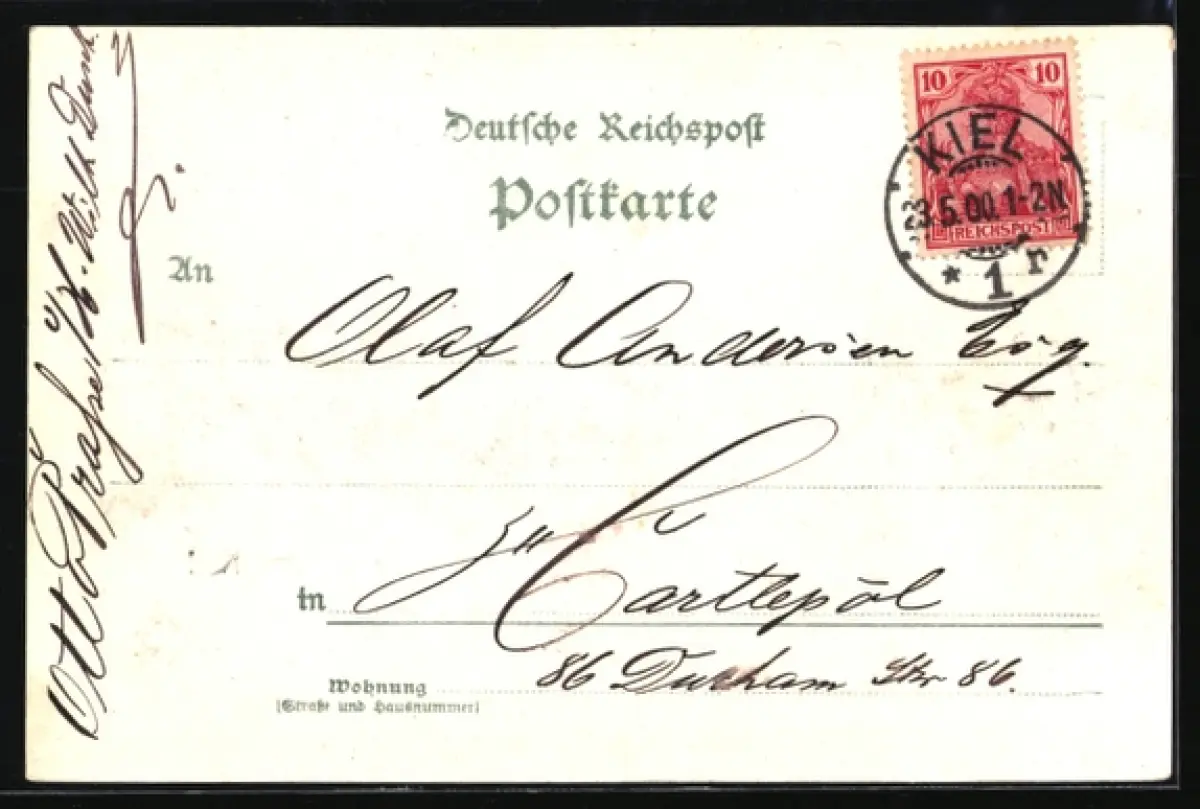 Deutsche Reichspost
Postkarte
10 10
REICHSPOST
KIEL
23.5.00.1-2N
* 1 r
An
Olaf Andersen Esq.
in zu Hartlepōl
Wohnung 86 Durham Str 86.
(Straße und Hausnummer)
Otto